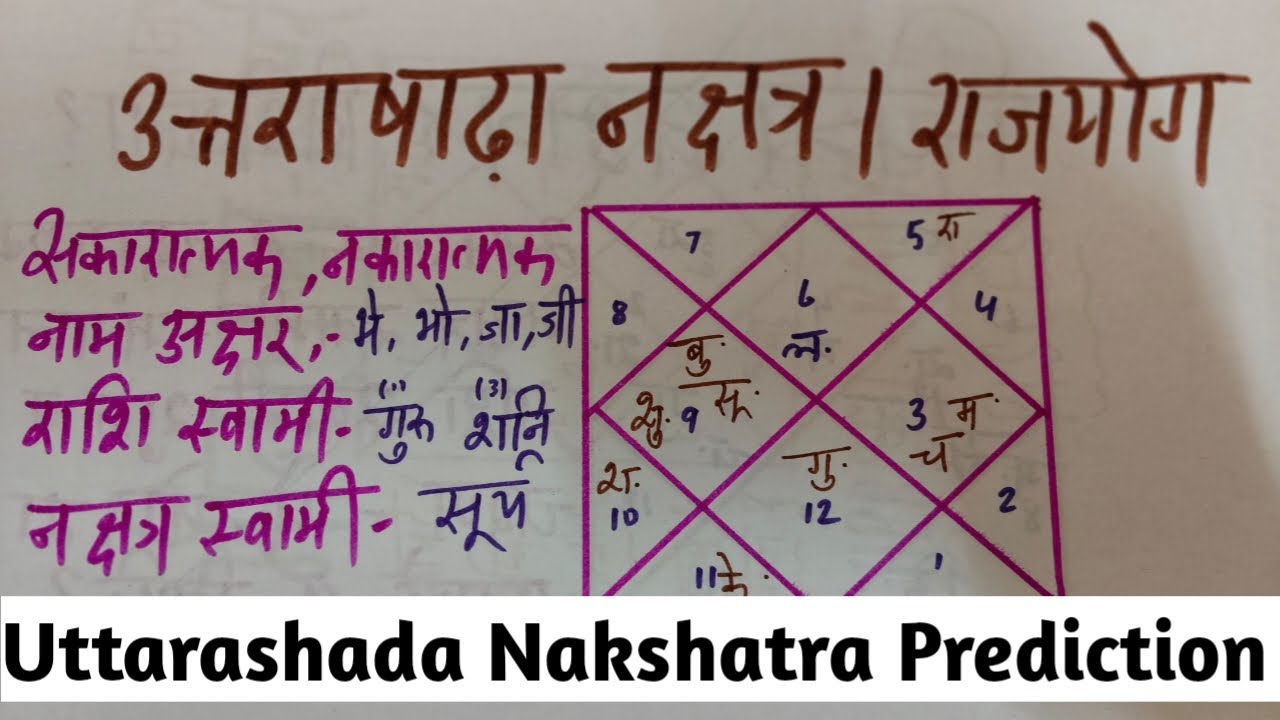 उत्तराषाढ़ा नक्षत्र । राजयोग
सकारात्मक, नकारात्मक
नाम अक्षर,- भे, भो, जा, जी
राशि स्वामी - गुरु (1) शनि (3)
नक्षत्र स्वामी - सूर्य
7
5 रा
8
6
ल.
4
बु.
शु. 9 सू.
3 म.
चं
श.
10
गु.
12
2
11 के.
1
Uttarashada Nakshatra Prediction